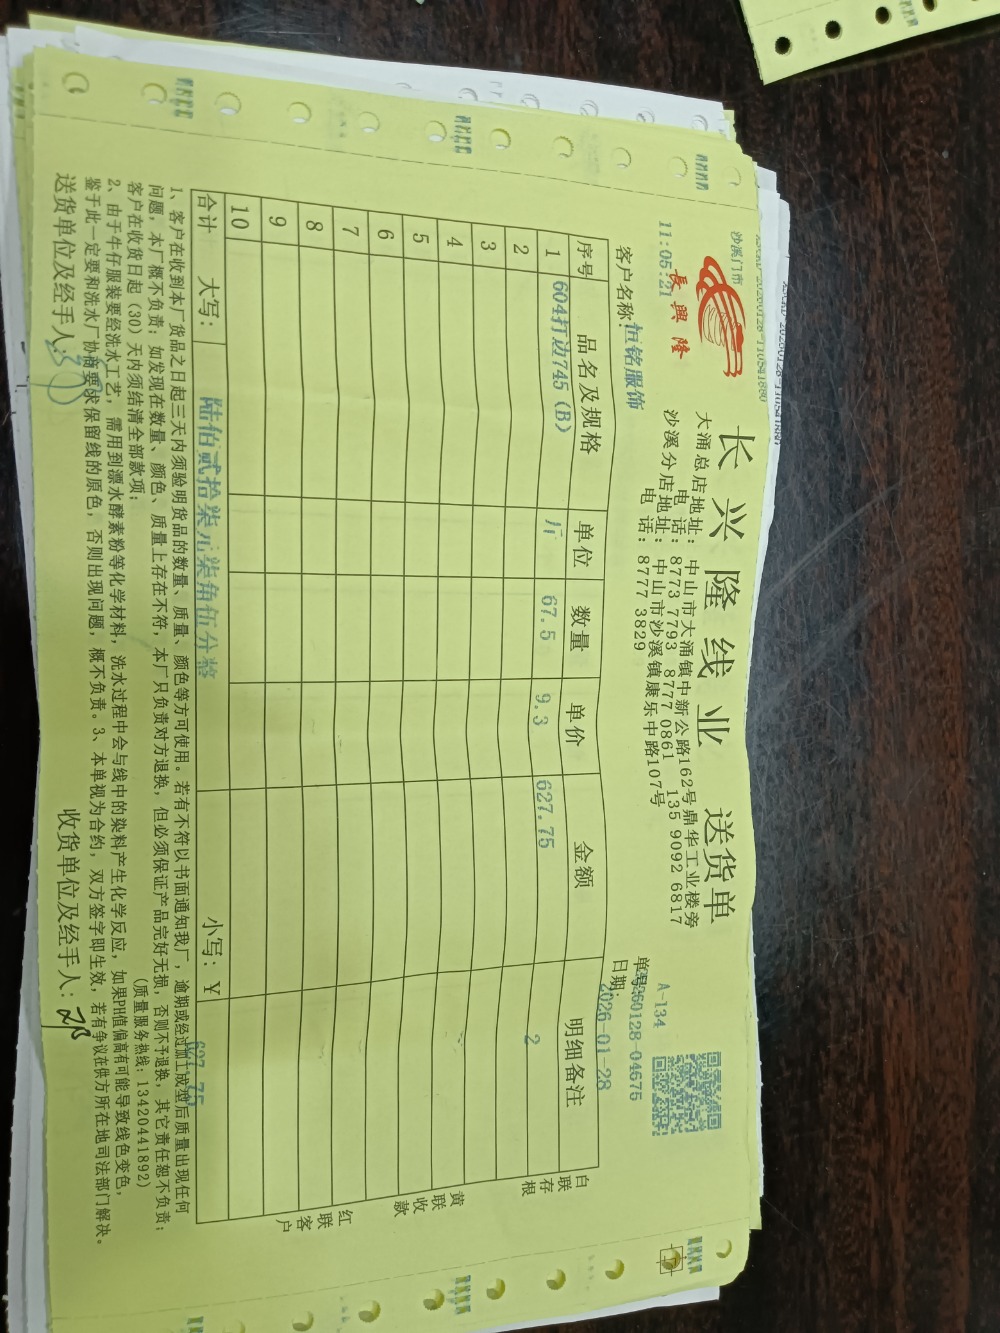 长兴隆线业 送货单
長興隆
沙溪门市
11:05:21
大涌总店地址：中山市大涌镇中新公路162号鼎华工业楼旁
电话：8773 7793 8777 0861 135 9092 6817
沙溪分店地址：中山市沙溪镇康乐中路107号
电话：8777 3829
A-134
客户名称：恒铭服饰
单号：
0128-04675
日期：2026-01-28
序号 品名及规格 单位 数量 单价 金额 明细备注
1 604打边745(B) 斤 67.5 9.3 627.75 2
2
3
4
5
6
7
8
9
10
合计 大写：陆佰贰拾柒元柒角伍分整 小写：￥ 627.75
白联存根
黄联收款
红联客户
1、客户在收到本厂货品之日起三天内须验明货品的数量、质量、颜色等方可使用。若有不符以书面通知我厂，逾期或经过加工成型后质量出现任何
问题，本厂概不负责；如发现在数量、颜色、质量上存在不符，本厂只负责对方退换，但必须保证产品完好无损，否则不予退换，其它责任恕不负责；
客户在收货日起（30）天内须结清全部款项； （质量服务热线：13420441892）
2、由于牛仔服装要经洗水工艺，需用到漂水酵素粉等化学材料，洗水过程中会与线中的染料产生化学反应，如果PH值偏高有可能导致线色变色，
鉴于此一定要和洗水厂协商要求保留线的原色，否则出现问题，概不负责。3、本单视为合约，双方签字即生效，若有争议在供方所在地司法部门解决。
送货单位及经手人： 收货单位及经手人：